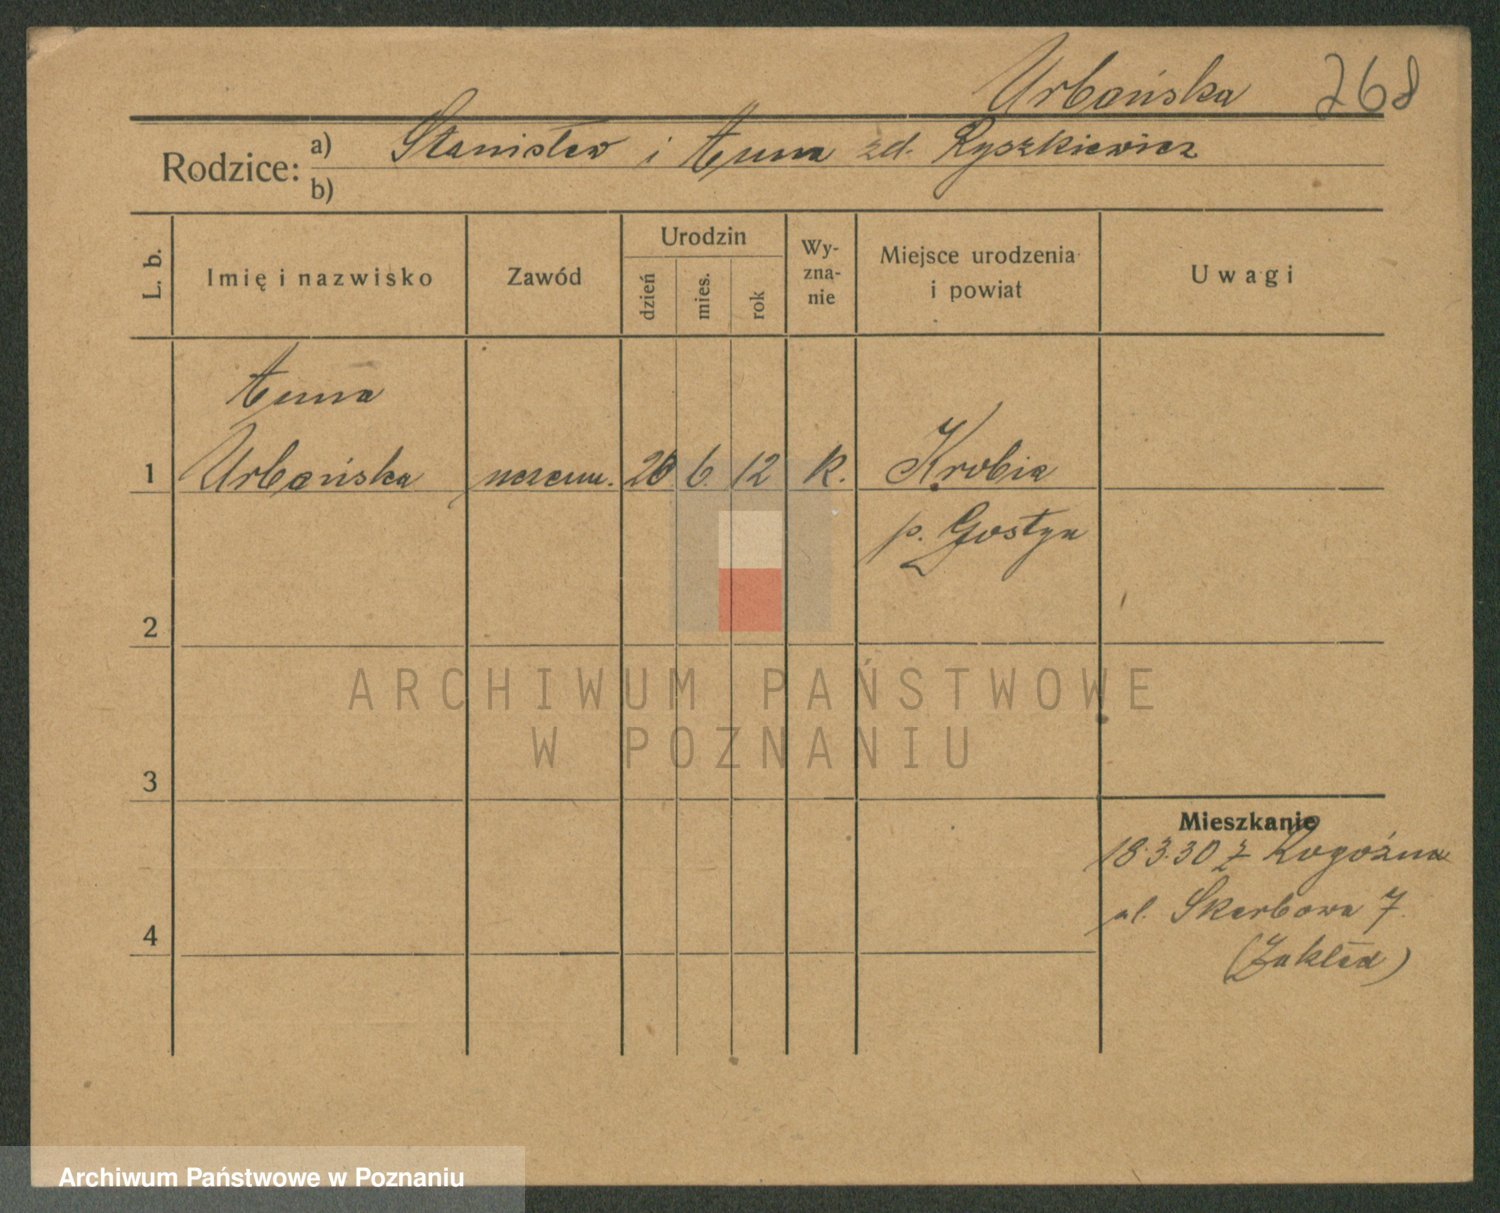 Urbańska 268
Rodzice: a) Stanisław i Anna zd. Ryszkiewicz
b)
L. b.
Imię i nazwisko
Zawód
Urodzin
dzień
mies.
rok
Wy-
zna-
nie
Miejsce urodzenia
i powiat
Uwagi
Anna
1 Urbańska uczenn. 6. 12 k. Krobia
p. Gostyn
2
3
4
Mieszkanie
18.3.30 z Rogoźna
ul. Skarbowa 7.
(Zakład)
ARCHIWUM PAŃSTWOWE
W POZNANIU
Archiwum Państwowe w Poznaniu